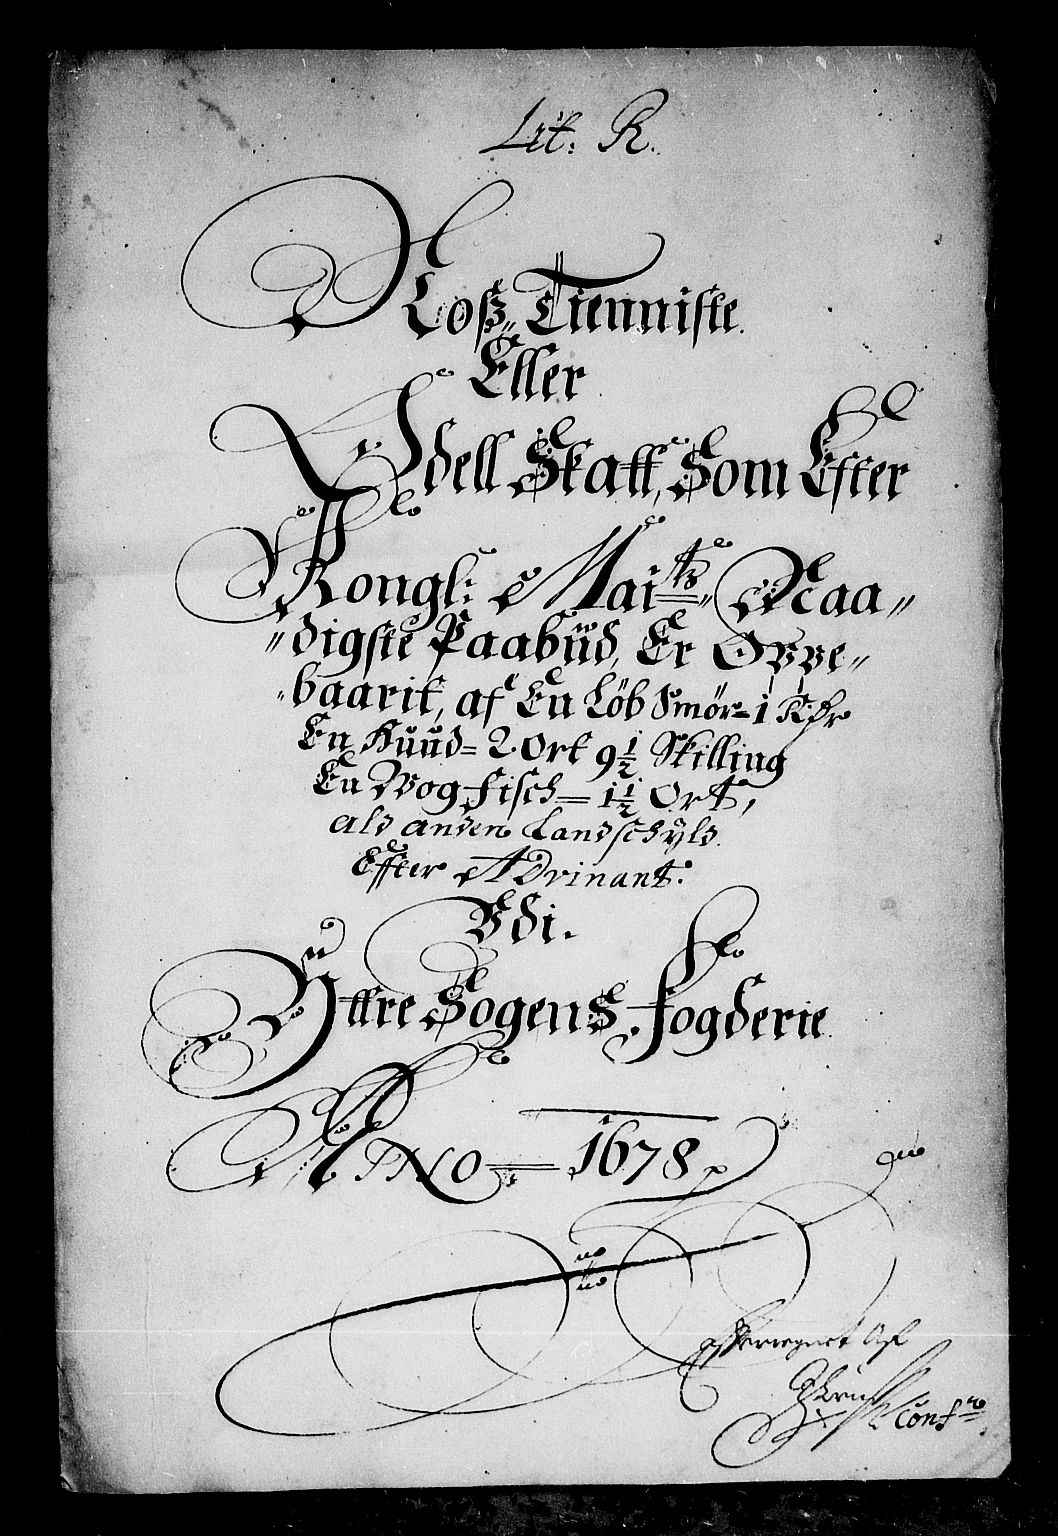 Lit: R.
Roß Tienniste
Eller
Odell Skatt, Som Efter
Kongl: Maits Naa„
„digste Paabud, Er Oppe„
„baarit, af En Løb Smør = 1 Rdr
En Huud = 2 Ort 9 1/2 Skilling
En Wog Fisch = 1 1/2 Ort,
ald anden Landschyld
Effter Advinant.
Udi.
Yttre Sogens Fogderie
ANNO = 1678
Efterregnet Af